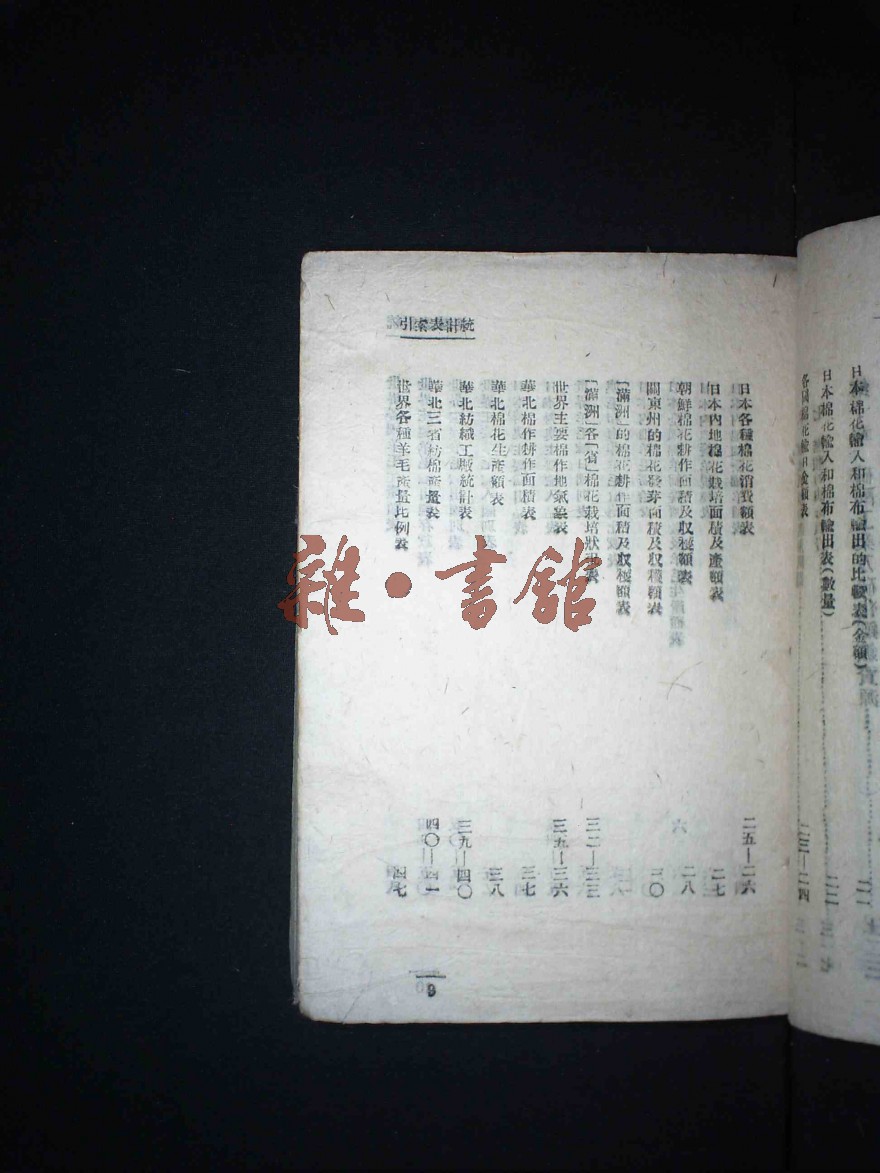 日本棉花輸入和棉布輸出的比較表(金額)
日本棉花輸入和棉布輸出表(數量)
各國棉花輸出金額表 二三—二四
統計表索引
日本各種棉花消費額表 二五—二六
日本內地棉花栽培面積及產額表 二七
朝鮮棉花耕作面積及收穫額表 二八
關東州的棉花發芽面積及收穫額表 三〇
「滿洲」的棉花耕作面積及收穫額表
「滿洲」各「省」棉花栽培狀 表 三二—三三
世界主要棉作地氣象表 三五—三六
華北棉作耕作面積表 三七
華北棉花生產額表 三八
華北紡織工廠統計表 三九—四〇
華北三省紡棉產量表 四〇—四一
世界各種羊毛產量比例表 四七
9
雜·書館